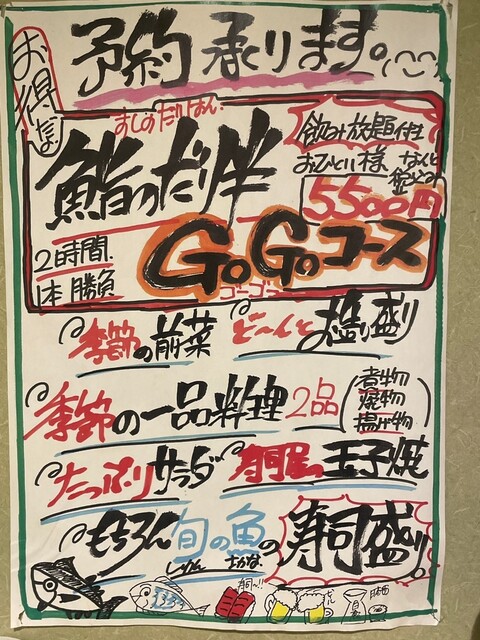 予約承ります。
お得だよ
すしのだりはん
鮨のだり半
飲み放題付き
おひとり様 なんと
税込
5500円
2時間
1本勝負
GoGoコース
ゴーゴー
季節の前菜
ど〜んとお造り盛り
季節の一品料理2品
煮物
焼物
揚げ物
たっぷりサラダ
寿司屋の玉子焼
もちろん旬の魚の寿司盛り。
しゅん さかな